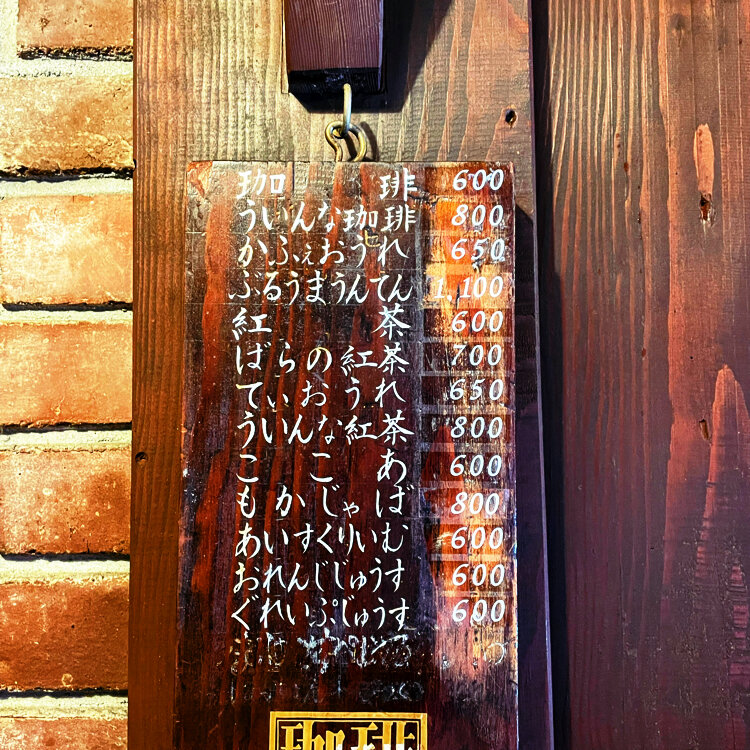 珈琲 600
ういんな珈琲 800
かふぇおうれ 650
ぶるうまうんてん 1,100
紅茶 600
ばらの紅茶 700
てぃおうれ 650
ういんな紅茶 800
ここあ 600
もかじゃば 800
あいすくりいむ 600
おれんじじゅうす 600
ぐれいぷじゅうす 600
珈琲